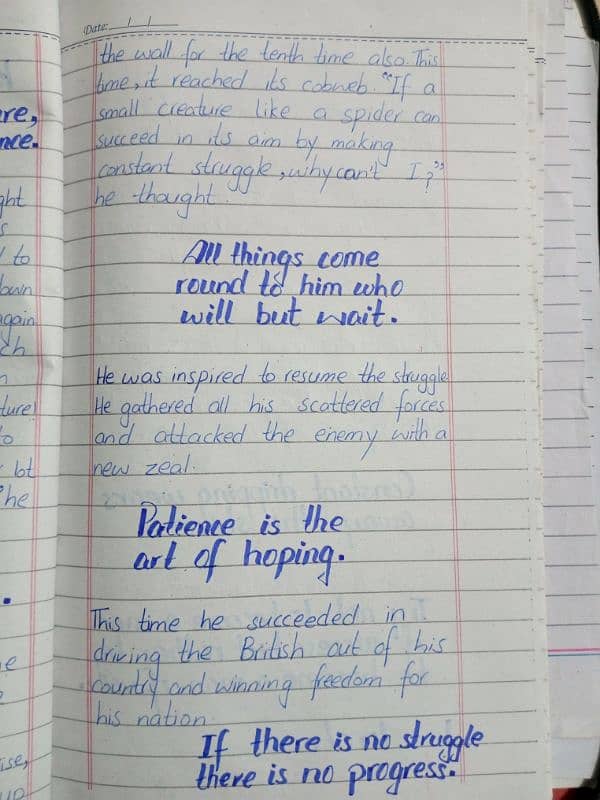 Date:
the wall for the tenth time also. This
time, it reached its cobweb. "If a
small creature like a spider can
succeed in its aim by making
constant struggle, why can't I?"
he thought.
All things come
round to him who
will but wait.
He was inspired to resume the struggle
He gathered all his scattered forces
and attacked the enemy with a
new zeal.
Patience is the
art of hoping.
This time he succeeded in
driving the British out of his
country and winning freedom for
his nation
If there is no struggle
there is no progress.